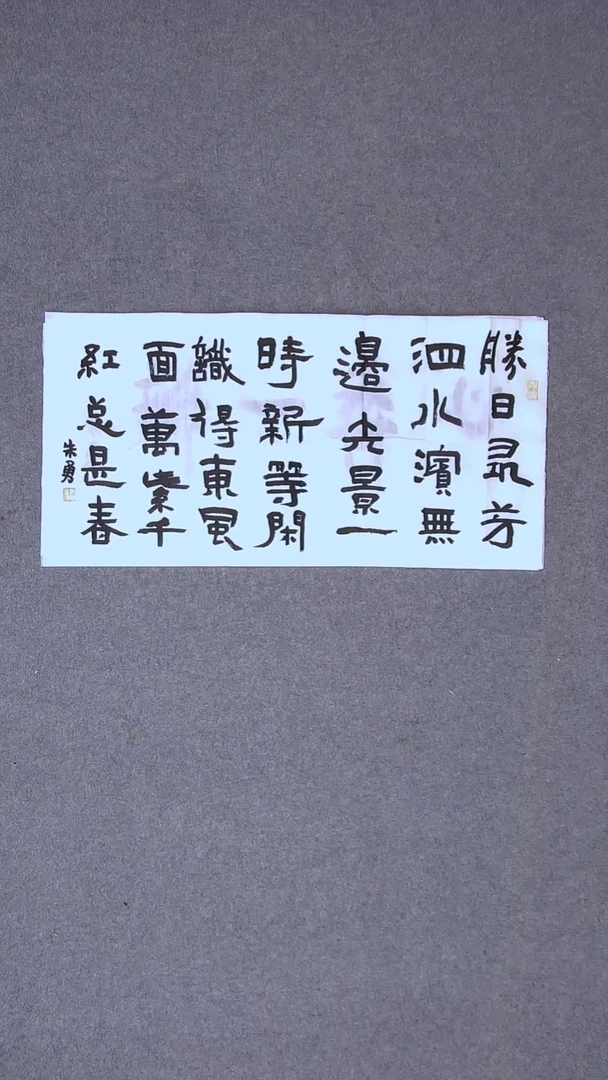 勝日尋芳
泗水濱無
邊光景一
時新等閑
識得東風
面萬紫千
紅總是春
朱勇